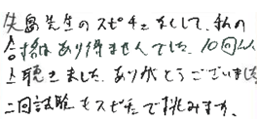 矢島先生のスピチェなくして、私の
合格はあり得ませんでした。10回以
上聴きました。ありがとうございました
二回試験もスピチェで挑みます。